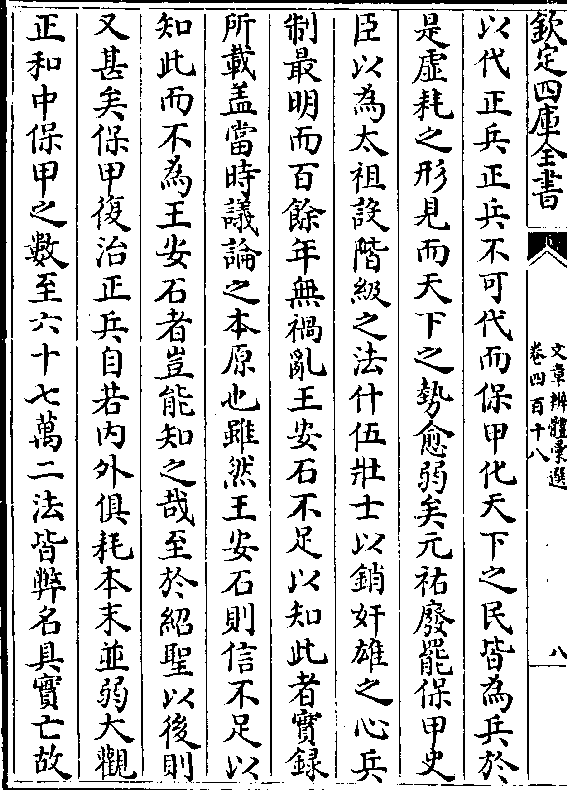 欽定四庫全書
文章辨體彙選
卷四百十八
八
以代正兵正兵不可代而保甲化天下之民皆為兵於
是虛耗之形見而天下之勢愈弱矣元祐廢罷保甲史
臣以為太祖設階級之法什伍壯士以銷奸雄之心兵
制最明而百餘年無禍亂王安石不足以知此者實錄
所載盖當時議論之本原也雖然王安石則信不足以
知此而不為王安石者豈能知之哉至於紹聖以後則
又甚矣保甲復治正兵自若内外俱耗本末並弱大觀
正和中保甲之數至六十七萬二法皆弊名具實亡故